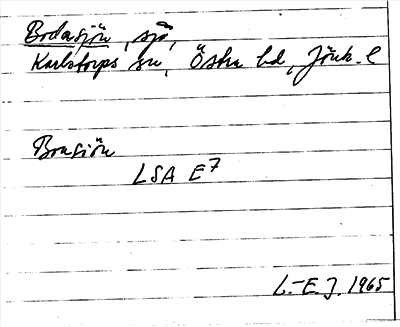 Bodasjön, sjö,
Karlstorps sn, Östra hd, Jönk. l
Bousjön
LSA E7
L.-E. J. 1965